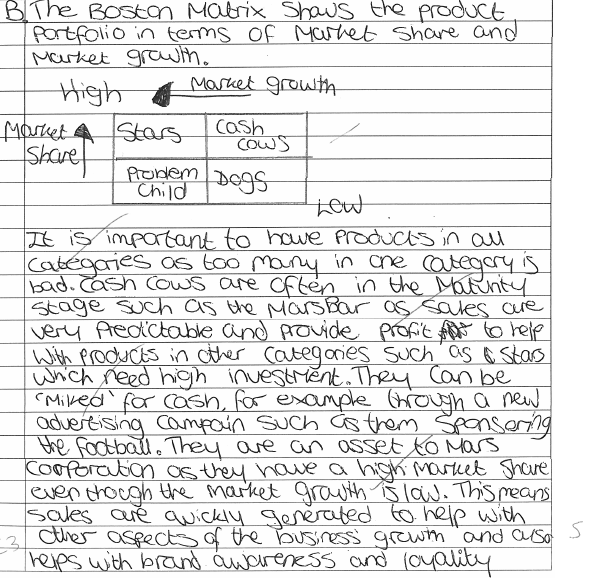 B. The Boston Matrix shows the product
Portfolio in terms of Market share and
Market growth.
High Market growth
Market Share
Stars Cash cows
Problem Child Dogs
Low
It is important to have products in all
categories as too many in one category is
bad. Cash cows are often in the Maturity
stage such as the MarsBar as sales are
very Predictable and provide profit to help
with products in other categories such as Stars
which need high investment. They can be
'Milked' for cash, for example through a new
advertising campain such as them sponsering
the football. They are an asset to Mars
Corporation as they have a high Market share
even though the market growth is low. This means
sales are quickly generated to help with
other aspects of the business growth and also
helps with brand awareness and loyality
3
5